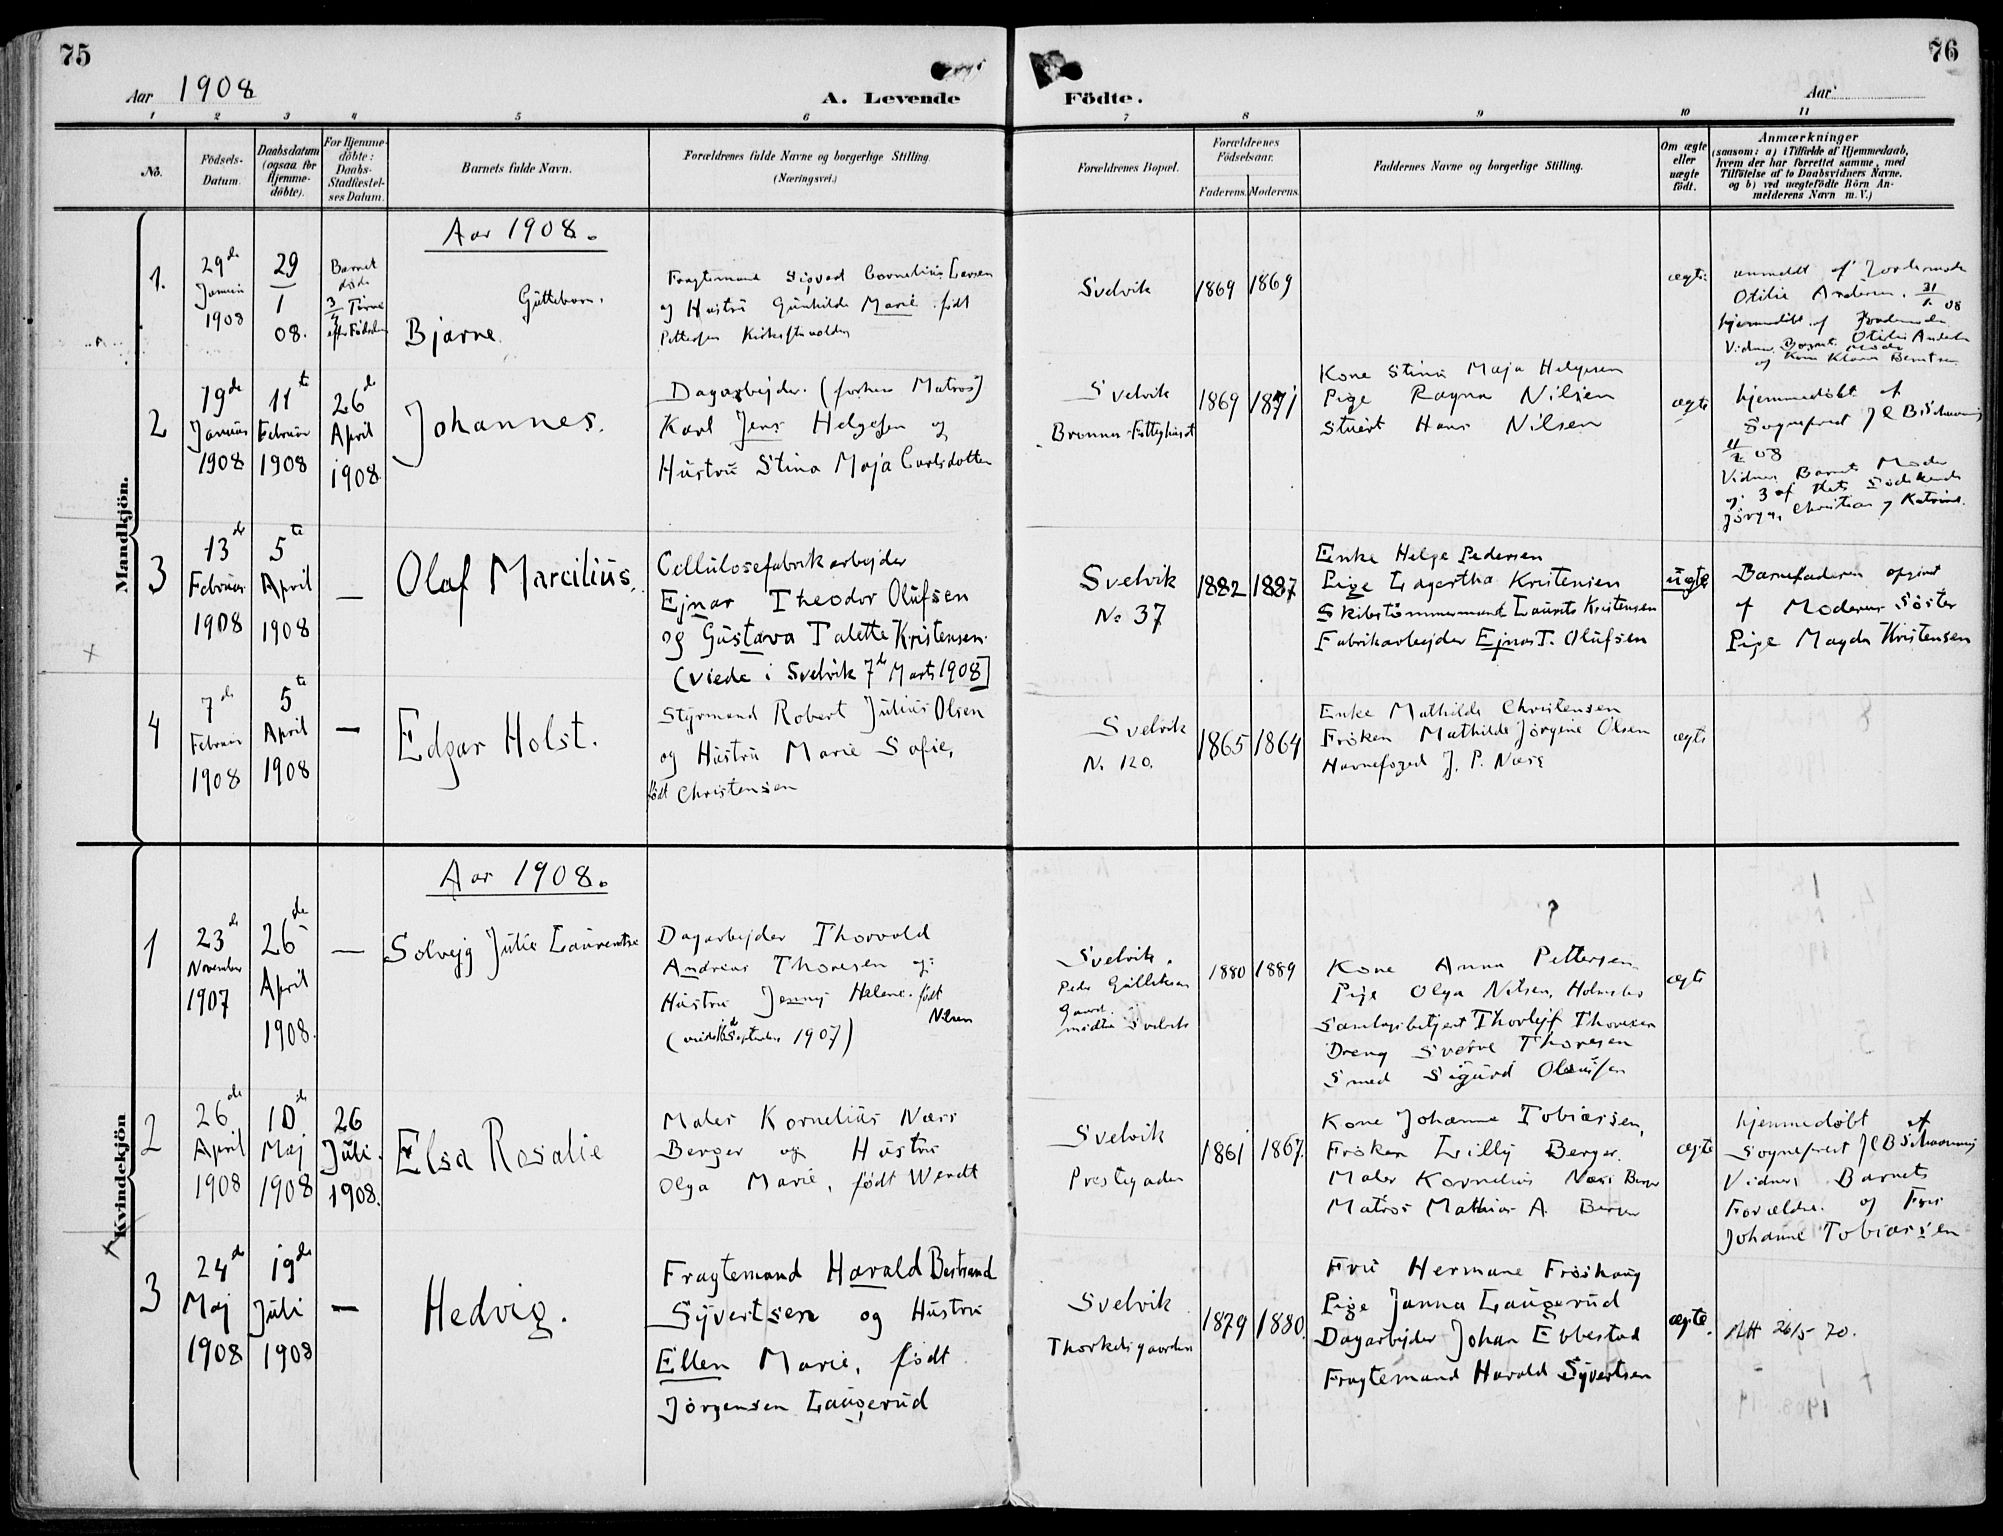 75
76
Aar 1908
A. Levende
Födte.
Aar
1 2 3 4 5 6 7 8 9 10 11
No.
Födsels-
Datum.
Daabsdatum
(ogsaa for
Hjemme-
döbte).
For Hjemme-
döbte:
Daabs-
Stadfæstel-
ses Datum.
Barnets fulde Navn.
Forældrenes fulde Navne og borgerlige Stilling.
(Næringsvei.)
Forældrenes Bopæl.
Forældrenes
Födselsaar.
Faderens.
Moderens.
Faddernes Navne og borgerlige Stilling.
Om ægte
eller
uægte
födt.
Anmærkninger
(saasom: a) i Tilfælde af Hjemmedaab,
hvem der har forrettet samme, med
Tilföielse af to Daabsvidners Navne.
og b) ved uægtefödte Börn An-
melderens Navn m. V.)
Mandkjön.
Aar 1908.
1.
29de
Januar
1908
29
1
08.
Barnet
døde
3/4 Time
efter Fødselen
Guttebarn.
Bjarne
Fragtemand Sigvard Cornelius Larsen
og Hustru Gunhilde Marie født
Pettersen
Svelvik
1869
1869
ægte
anmeldt af Jordemoder
Otilie Andersen. 31/1 08
hjemmedøbt af Jordemoder
Otilie Andersen
Vidner Barnets Moder
og Kone Klara Berntsen
2
19de
Januar
1908
11te
Februar
1908
26de
April
1908
Johannes.
Dagarbejder (forhen Matros)
Karl Jens Helgesen og
Hustru Stina Maja Carlsdotter
Svelvik
Brunnes-Fattighuset
1869
1871
Kone Stina Maja Helgesen
Pige Ragna Nilsen
Stuert Hans Nilsen
ægte
hjemmedøbt af
Sogneprest J C B Schawning
11/2 08
Vidner Barnets Moder
og 3 af dets Sødskende
Jørgen, Christian og Katrine.
3
13de
Februar
1908
5te
April
1908
—
Olaf Marcilius.
Cellulosefabrikarbejder
Ejnar Theodor Olufsen
og Gustava Talette Kristensen.
(viede i Svelvik 7de Marts 1908)
Svelvik
No 37
1882
1887
Enke Helge Pedersen
Pige Lagertha Kristensen
Skibstømmermand Laurits Kristensen
Fabrikarbejder Ejnar T. Olufsen
uægte
Barnefaderen opgivet
af Moderens Søster
Pige Magda Kristensen
4
7de
Februar
1908
5te
April
1908
—
Edgar Holst.
Styrmand Robert Julius Olsen
og Hustru Marie Sofie,
født Christensen
Svelvik
No 120.
1865
1864
Enke Mathilde Christensen
Frøken Mathilde Jørgine Olsen
Havnefoged J. P. Næss
ægte
Kvindekjön
Aar 1908.
1
23de
November
1907
26de
April
1908.
—
Solvejg Julie Laurentze
Dagarbejder Thorvald
Andreas Thoresen og
Hustru Jenny Helene født
Nilsen
(viede September 1907)
Svelvik.
Peder Gulliksens
Gaard.
Svelvik
1880
1889
Kone Anna Pettersen
Pige Olga Nilsen, Holmsbo
Samlagsbetjent Thorlejf Thoresen
Dreng Sverre Thoresen
Smed Sigurd Olausen
ægte
2
26de
April
1908
10de
Maj
1908
26
Juli
1908.
Elsa Rosalie
Maler Kornelius Næss
Berger og Hustru
Olga Marie, født Wendt
Svelvik
Prestegaden
1861
1867
Kone Johanne Tobiassen,
Frøken Lilly Berger.
Maler Kornelius Næss Berger
Matros Mathias A. Berger
ægte
hjemmedøbt af
Sogneprest J C B Schawning
Vidner Barnets
Forældre og Fru
Johanne Tobiassen
3
24de
Maj
1908
19de
Juli
1908
—
Hedvig.
Fragtemand Harald Bertrand
Syvertsen og Hustru
Ellen Marie, født
Jørgensen Laugerud
Svelvik
Thorkelsgaarden
1879
1880.
Fru Hermane Frøshaug
Pige Janna Laugerud
Dagarbejder Johan Ebbestad
Fragtemand Harald Syvertsen
ægte.
Att 26/5-20.